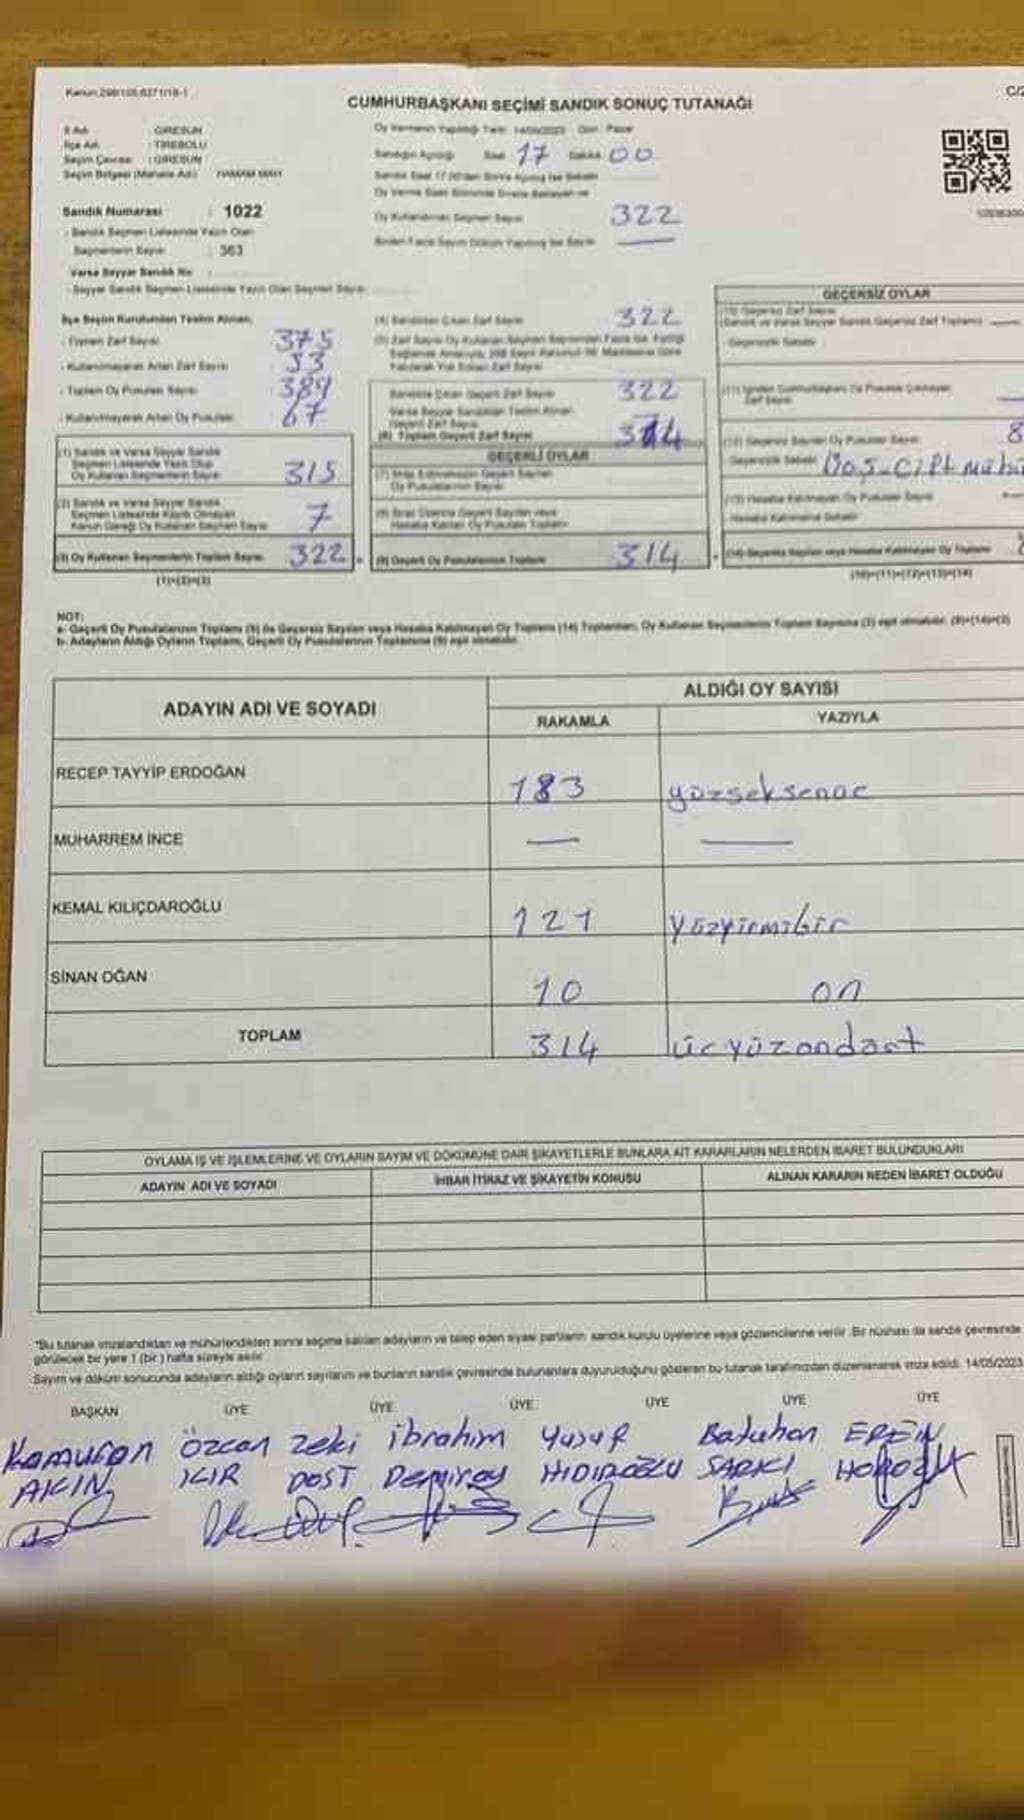 Kanun:298/105,6271/18-1
C/2
CUMHURBAŞKANI SEÇİMİ SANDIK SONUÇ TUTANAĞI
İl Adı : GİRESUN
İlçe Adı : TİREBOLU
Seçim Çevresi : GİRESUN
Seçim Bölgesi (Mahalle Adı) HAMAM MAH
Oy Vermenin Yapıldığı Tarih: 14/05/2023 Gün: Pazar
Sandığın Açıldığı Saat 17 Dakika 00
Oy Kullandırılan Seçmen Sayısı 322
Sandık Numarası : 1022
- Sandık Seçmen Listesinde Yazılı Olan
Seçmenlerin Sayısı : 363
Varsa Seyyar Sandık No :
- Seyyar Sandık Seçmen Listesinde Yazılı Olan Seçmen Sayısı
İlçe Seçim Kurulundan Teslim Alınan;
- Toplam Zarf Sayısı 375
- Kullanılmayarak Artan Zarf Sayısı 53
- Toplam Oy Pusulası Sayısı 389
- Kullanılmayarak Artan Oy Pusulası 67
(1) Sandık ve Varsa Seyyar Sandık
Seçmen Listesinde Yazılı Olup
Oy Kullanan Seçmenlerin Sayısı 315
(2) Sandık ve Varsa Seyyar Sandık
Seçmen Listesinde Kayıtlı Olmayan
Kanun Gereği Oy Kullanan Seçmen Sayısı 7
(3) Oy Kullanan Seçmenlerin Toplam Sayısı 322
(1)+(2)=(3)
(4) Sandıktan Çıkan Zarf Sayısı 322
Sandıkta Çıkan Geçerli Zarf Sayısı 322
Varsa Seyyar Sandıktan Teslim Alınan
Geçerli Zarf Sayısı
(6) Toplam Geçerli Zarf Sayısı 314
GEÇERLİ OYLAR
(7) İtiraz Edilmeksizin Geçerli Sayılan
Oy Pusulalarının Sayısı
(8) İtiraz Üzerine Geçerli Sayılan veya
Hesaba Katılan Oy Pusulaları Toplamı
(9) Geçerli Oy Pusulalarının Toplamı 314
GEÇERSİZ OYLAR
(10) Geçersiz Zarf Sayısı
(Sandık ve Varsa Seyyar Sandık Geçersiz Zarf Toplamı)
- Geçersizlik Sebebi
(12) Geçersiz Sayılan Oy Pusulası Sayısı 8
- Geçersizlik Sebebi
(13) Hesaba Katılmayan Oy Pusulası Sayısı
- Hesaba Katılmama Sebebi
(14) Geçersiz Sayılan veya Hesaba Katılmayan Oy Toplamı
(10)+(11)+(12)+(13)=(14)
NOT:
a- Geçerli Oy Pusulalarının Toplamı (9) ile Geçersiz Sayılan veya Hesaba Katılmayan Oy Toplamı (14) Toplamları, Oy Kullanan Seçmenlerin Toplam Sayısına (3) eşit olmalıdır. (9)+(14)=(3)
b- Adayların Aldığı Oyların Toplamı, Geçerli Oy Pusulalarının Toplamına (9) eşit olmalıdır.
ADAYIN ADI VE SOYADI
ALDIĞI OY SAYISI
RAKAMLA YAZIYLA
RECEP TAYYİP ERDOĞAN 183 yüzseksenüç
MUHARREM İNCE — —
KEMAL KILIÇDAROĞLU 121 yüzyirmibir
SİNAN OĞAN 10 on
TOPLAM 314 üçyüzondört
OYLAMA İŞ VE İŞLEMLERİNE VE OYLARIN SAYIM VE DÖKÜMÜNE DAİR ŞİKAYETLERLE BUNLARA AİT KARARLARIN NELERDEN İBARET BULUNDUKLARI
ADAYIN ADI VE SOYADI İHBAR İTİRAZ VE ŞİKAYETİN KONUSU ALINAN KARARIN NEDEN İBARET OLDUĞU
*Bu tutanak imzalandıktan ve mühürlendikten sonra seçime katılan adayların ve talep eden siyasi partilerin sandık kurulu üyelerine veya gözlemcilerine verilir. Bir nüshası da sandık çevresinde
görülecek bir yere 1 (bir) hafta süreyle asılır.
Sayım ve döküm sonucunda adayların aldığı oyların sayılarını ve bunların sandık çevresinde bulunanlara duyurulduğunu gösteren bu tutanak tarafımızdan düzenlenerek imza edildi. 14/05/2023
BAŞKAN ÜYE ÜYE ÜYE ÜYE ÜYE ÜYE
Kamuran Özcan Zeki İbrahim Yusuf Batuhan
AKIN DOST Demiray HIDIROĞLU